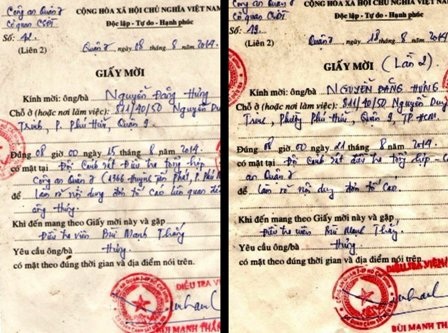 Công an Quận 9
Cơ quan CSĐT
CỘNG HÒA XÃ HỘI CHỦ NGHĨA VIỆT NAM
Độc lập - Tự do - Hạnh phúc
Số: 42.
(Liên 2)
Quận 9 ngày 08 tháng 8 năm 2014.
GIẤY MỜI
Kính mời: ông/bà Nguyễn Đăng Hưng
Chỗ ở (hoặc nơi làm việc): 511/40/50 Nguyễn Duy
Trinh, P. Phú Hữu, Quận 9.
Đúng 08 giờ 00 ngày 15 tháng 8 năm 2014.
có mặt tại Đội Cảnh sát Điều tra tổng hợp
Công an Quận 9 ( Huỳnh Tấn Phát, P.
để làm rõ nội dung đơn tố cáo liên quan
ông Hưng
Khi đến mang theo Giấy mời này và gặp
Điều tra viên Bùi Mạnh Thắng
Yêu cầu ông/bà Hưng
có mặt theo đúng thời gian và địa điểm nói trên.
ĐIỀU TRA
Công an Quận 9
Cơ quan CSĐT
CỘNG HÒA XÃ HỘI CHỦ NGHĨA VIỆT NAM
Độc lập - Tự do - Hạnh phúc
(Liên 2)
Quận 9 ngày 18 tháng 8 năm 2014.
GIẤY MỜI (Lần 2)
Kính mời: ông/bà NGUYỄN ĐĂNG HƯNG
Chỗ ở (hoặc nơi làm việc): 511/40/50 Nguyễn Duy
Trinh, Phường Phú Hữu, Quận 9, TP.HCM.
Đúng 08 giờ 00 ngày 21 tháng 8 năm 2014.
có mặt tại Đội Cảnh sát điều tra tổng hợp - Công
an Quận 9
để làm rõ nội dung đơn tố cáo.
Khi đến mang theo Giấy mời này và gặp
Điều tra viên Bùi Mạnh Thắng.
Yêu cầu ông/bà Hưng
có mặt theo đúng thời gian và địa điểm nói trên.
ĐIỀU TRA VIÊN
BÙI MẠNH